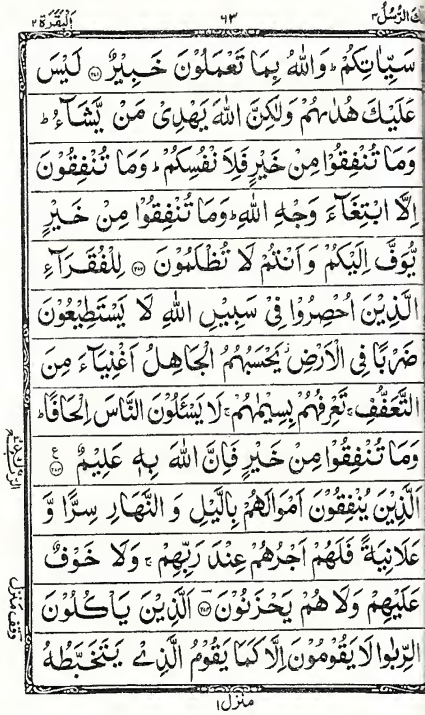 تِلْكَ الرُّسُلُ ٣ ٦٣ اَلْبَقَرَة ٢
سَيِّاٰتِكُمْ ؕ وَاللّٰهُ بِمَا تَعْمَلُوْنَ خَبِيْرٌ ﴿۲۷۱﴾ لَيْسَ
عَلَيْكَ هُدٰىهُمْ وَلٰكِنَّ اللّٰهَ يَهْدِىْ مَنْ يَّشَآءُ ؕ
وَمَا تُنْفِقُوْا مِنْ خَيْرٍ فَلِاَنْفُسِكُمْ ؕ وَمَا تُنْفِقُوْنَ
اِلَّا ابْتِغَآءَ وَجْهِ اللّٰهِ ؕ وَمَا تُنْفِقُوْا مِنْ خَيْرٍ
يُّوَفَّ اِلَيْكُمْ وَاَنْتُمْ لَا تُظْلَمُوْنَ ﴿۲۷۲﴾ لِلْفُقَرَآءِ
الَّذِيْنَ اُحْصِرُوْا فِىْ سَبِيْلِ اللّٰهِ لَا يَسْتَطِيْعُوْنَ
ضَرْبًا فِى الْاَرْضِ ؗ يَحْسَبُهُمُ الْجَاهِلُ اَغْنِيَآءَ مِنَ
التَّعَفُّفِ ۚ تَعْرِفُهُمْ بِسِيْمٰىهُمْ ۚ لَا يَسْـَٔلُوْنَ النَّاسَ اِلْحَافًا ؕ
وَمَا تُنْفِقُوْا مِنْ خَيْرٍ فَاِنَّ اللّٰهَ بِهٖ عَلِيْمٌ ﴿۲۷۳﴾ ع
اَلَّذِيْنَ يُنْفِقُوْنَ اَمْوَالَهُمْ بِالَّيْلِ وَ النَّهَارِ سِرًّا وَّ
عَلَانِيَةً فَلَهُمْ اَجْرُهُمْ عِنْدَ رَبِّهِمْ ۚ وَلَا خَوْفٌ
عَلَيْهِمْ وَلَا هُمْ يَحْزَنُوْنَ ﴿۲۷۴﴾ اَلَّذِيْنَ يَاْكُلُوْنَ
الرِّبٰوا لَا يَقُوْمُوْنَ اِلَّا كَمَا يَقُوْمُ الَّذِىْ يَتَخَبَّطُهُ
وقف منزل
منزل ١